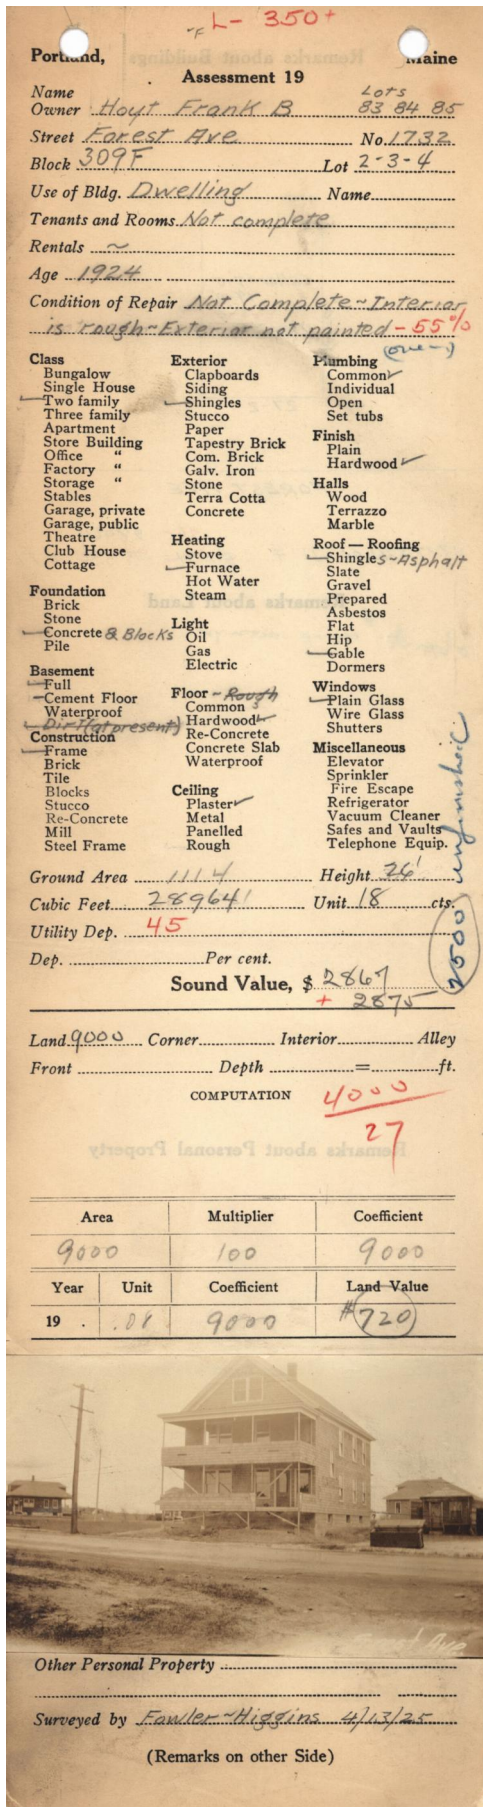 L- 350+
Portland, Maine
Assessment 19
Name Lots
Owner Hoyt Frank B 83 84 85
Street Forest Ave No. 1732
Block 309F Lot 2-3-4
Use of Bldg. Dwelling Name
Tenants and Rooms Not complete
Rentals ~
Age 1924
Condition of Repair Not Complete ~ Interior
is rough ~ Exterior not painted - 55%
Class
Bungalow
Single House
Two family
Three family
Apartment
Store Building
Office "
Factory "
Storage "
Stables
Garage, private
Garage, public
Theatre
Club House
Cottage
Foundation
Brick
Stone
Concrete & Blocks
Pile
Basement
Full
Cement Floor
Waterproof
Dirt (at present)
Construction
Frame
Brick
Tile
Blocks
Stucco
Re-Concrete
Mill
Steel Frame
Exterior
Clapboards
Siding
Shingles
Stucco
Paper
Tapestry Brick
Com. Brick
Galv. Iron
Stone
Terra Cotta
Concrete
Heating
Stove
Furnace
Hot Water
Steam
Light
Oil
Gas
Electric
Floor - Rough
Common
Hardwood
Re-Concrete
Concrete Slab
Waterproof
Ceiling
Plaster
Metal
Panelled
Rough
Plumbing
Common
Individual
Open
Set tubs
Finish
Plain
Hardwood
Halls
Wood
Terrazzo
Marble
Roof — Roofing
Shingles - Asphalt
Slate
Gravel
Prepared
Asbestos
Flat
Hip
Gable
Dormers
Windows
Plain Glass
Wire Glass
Shutters
Miscellaneous
Elevator
Sprinkler
Fire Escape
Refrigerator
Vacuum Cleaner
Safes and Vaults
Telephone Equip.
2500
Ground Area 1114 Height 26'
Cubic Feet 28964' Unit 18 cts.
Utility Dep. 45
Dep. Per cent.
Sound Value, $ 2867
+ 2875
Land 9000 Corner Interior Alley
Front Depth = ft.
COMPUTATION 4000
27
Area Multiplier Coefficient
9000 100 9000
Year Unit Coefficient Land Value
19 . .08 9000 $720
Forest Ave
Other Personal Property
Surveyed by Fowler ~ Higgins 4/13/25
(Remarks on other Side)